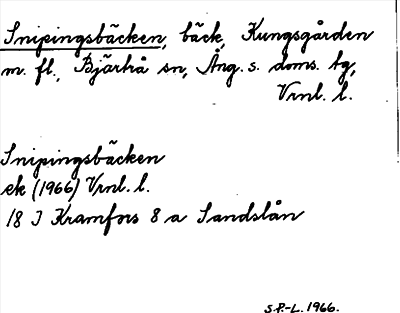 Snipingsbäcken, bäck, Kungsgården
m. fl., Bjärtrå sn, Ång. s. doms. tg,
Vrnl. l.
Snipingsbäcken
ek (1966) Vrnl. l.
18 J Kramfors 8 a Sandslån
S.P.-L. 1966.